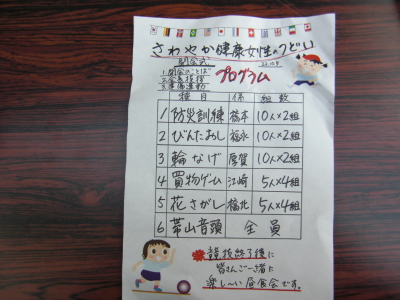 さわやか健康女性のつどい
開会式
1.開会のことば
2.会長挨拶
3.準備運動
プログラム
種目 係 組数
1 防災訓練 橋本 10人×2組
2 びんたおし 福永 10人×2組
3 輪なげ 厚賀 10人×2組
4 買物ゲーム 江崎 5人×4組
5 花さがし 橋北 5人×4組
6 帯山音頭 全員
競技終了後に
皆さんご一緒に
楽し〜い昼食会です。